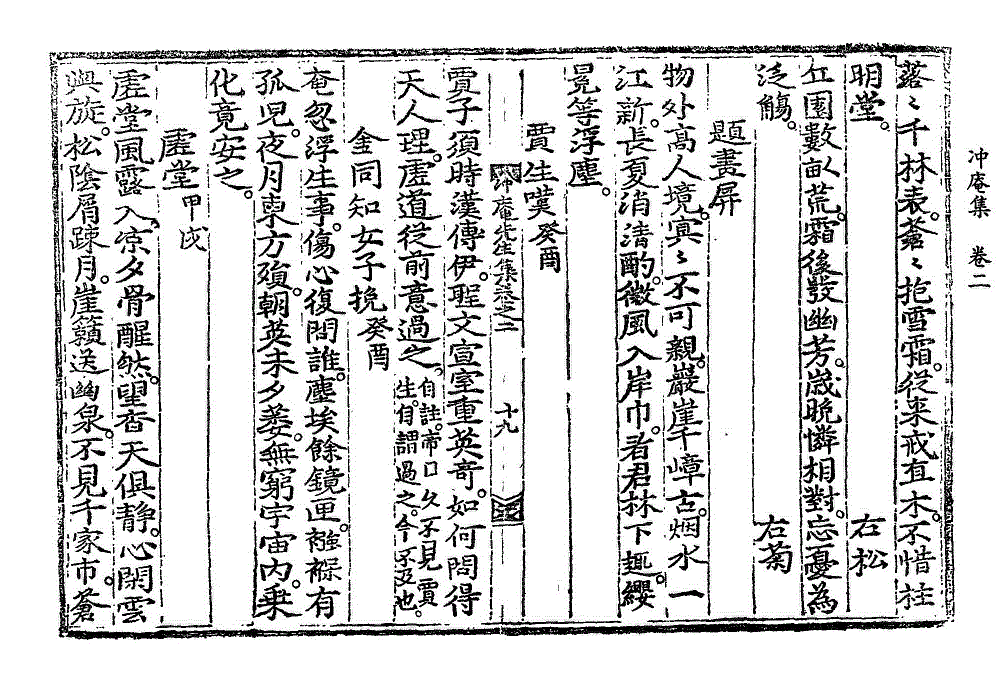 冲庵集　卷二
落〻千林表。蒼〻抱雪霜。從来戒直木。不惜柱
明堂。　右松
丘園數畝荒。霜後發幽芳。歲晩憐相對。忘憂為
泛觴。　右菊
題畫屏
物外高人境。冥〻不可親。巖崖千嶂古。烟水一
江新。長夏消清酌。微風入岸巾。看君林下趣。纓
冕等浮塵。
賈生嘆 癸酉
賈子須時漢傅伊。聖文宣室重英奇。如何問得
天人理。虛道從前意過之。自註。帝曰久不見賈生。自謂過之。今不及也。
金同知女子挽 癸酉
奄忽浮生事。傷心復問誰。塵埃餘鏡匣。襁褓有
孤児。夜月東方殞。朝英未夕萎。無窮宇宙内。乗
化竟安之。
虛堂 甲戌
虛堂風露入。凉夕骨醒然。望杳天俱静。心閑雲
與旋。松陰屑踈月。崖籟送幽泉。不見千家市。蒼
冲庵先生集卷之二　十九